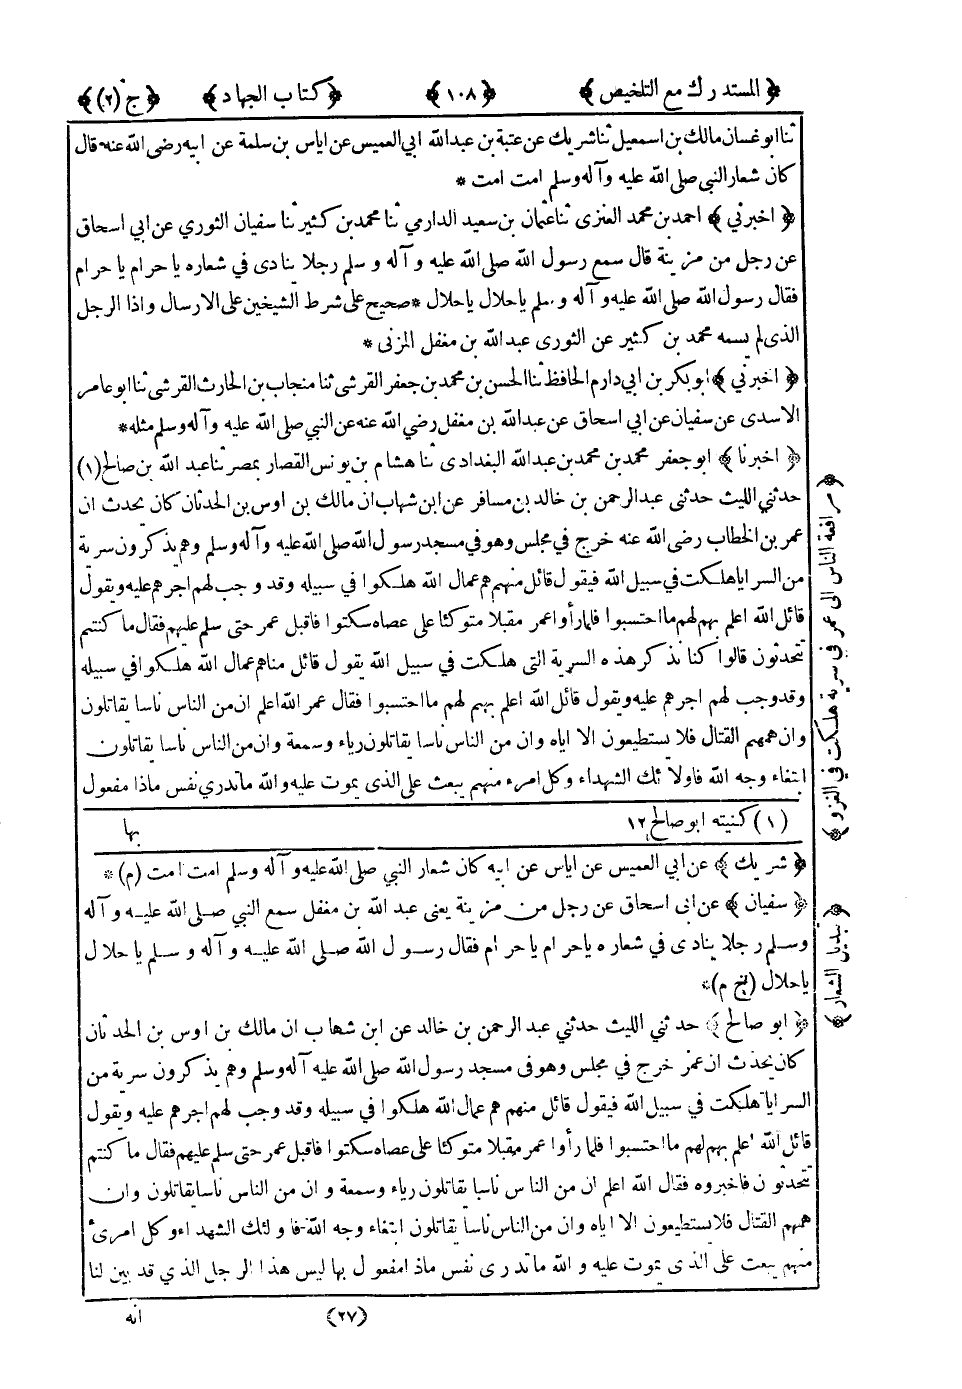 ﴿المستدرك مع التلخيص﴾ ﴿١٠٨﴾ ﴿كتاب الجهاد﴾ ﴿ج (٢)﴾
ثنا ابو غسان مالك بن اسمعيل ثنا شريك عن عتبة بن عبد الله ابي العميس عن اياس بن سلمة عن ابيه رضى الله عنه قال
كان شعار النبي صلى الله عليه وآله وسلم امت امت *
﴿اخبرني﴾ احمد بن محمد العنزى ثنا عثمان بن سعيد الدارمي ثنا محمد بن كثير ثنا سفيان الثوري عن ابي اسحاق
عن رجل من مزينة قال سمع رسول الله صلى الله عليه وآله وسلم رجلا ينادى في شعاره يا حرام يا حرام
فقال رسول الله صلى الله عليه وآله وسلم يا حلال يا حلال * صحيح على شرط الشيخين على الارسال واذا الرجل
الذى لم يسمه محمد بن كثير عن الثورى عبد الله بن مغفل المزنى *
﴿اخبرني﴾ ابو بكر بن ابي دارم الحافظ ثنا الحسن بن محمد بن جعفر القرشى ثنا منجاب بن الحارث القرشى ثنا ابو عامر
الاسدى عن سفيان عن ابي اسحاق عن عبد الله بن مغفل رضي الله عنه عن النبي صلى الله عليه وآله وسلم مثله *
﴿اخبرنا﴾ ابو جعفر محمد بن محمد بن عبد الله البغدادى ثنا هشام بن يونس القصار بمصر ثنا عبد الله بن صالح (١)
حدثني الليث حدثنى عبد الرحمن بن خالد بن مسافر عن ابن شهاب ان مالك بن اوس بن الحدثان كان يحدث ان
عمر بن الخطاب رضى الله عنه خرج في مجلس وهو في مسجد رسول الله صلى الله عليه وآله وسلم وهم يذكرون سرية
من السرايا هلكت في سبيل الله فيقول قائل منهم هم عمال الله هلكوا في سبيله وقد وجب لهم اجرهم عليه ويقول
قائل الله اعلم بهم لهم ما احتسبوا فلما رأوا عمر مقبلا متوكئا على عصاه سكتوا فاقبل عمر حتى سلم عليهم فقال ما كنتم
تتحدثون قالوا كنا نذكر هذه السرية التى هلكت في سبيل الله يقول قائل منا هم عمال الله هلكوا في سبيله
وقد وجب لهم اجرهم عليه ويقول قائل الله اعلم بهم لهم ما احتسبوا فقال عمر الله اعلم ان من الناس ناسا يقاتلون
وان همهم القتال فلا يستطيعون الا اياه وان من الناس ناسا يقاتلون رياء وسمعة وان من الناس ناسا يقاتلون
ابتغاء وجه الله فاولائك الشهداء وكل امرء منهم يبعث على الذى يموت عليه والله ماتدري نفس ماذا مفعول
(١) كنيته ابو صالح ١٢ بها
﴿شريك﴾ عن ابي العميس عن اياس عن ابيه كان شعار النبي صلى الله عليه وآله وسلم امت امت (م) *
﴿سفيان﴾ عن ابى اسحاق عن رجل من مزينة يعنى عبد الله بن مغفل سمع النبي صلى الله عليه وآله
وسلم رجلا ينادى في شعاره يا حرام يا حرام فقال رسول الله صلى الله عليه وآله وسلم يا حلال
يا حلال (خ م) *
﴿ابو صالح﴾ حدثني الليث حدثني عبد الرحمن بن خالد عن ابن شهاب ان مالك بن اوس بن الحدثان
كان يحدث ان عمر خرج في مجلس وهو فى مسجد رسول الله صلى الله عليه آله وسلم وهم يذكرون سرية من
السرايا هلكت في سبيل الله فيقول قائل منهم هم عمال الله هلكوا في سبيله وقد وجب لهم اجرهم عليه ويقول
قائل الله اعلم بهم لهم ما احتسبوا فلما رأوا عمر مقبلا متوكئا على عصاه سكتوا فاقبل عمر حتى سلم عليهم فقال ما كنتم
تتحدثون فاخبروه فقال الله اعلم ان من الناس ناسا يقاتلون رياء وسمعة وان من الناس ناسا يقاتلون وان
همهم القتال فلا يستطيعون الا اياه وان من الناس ناسا يقاتلون ابتغاء وجه الله فاولئك الشهداء وكل امرئ
منهم يبعث على الذى يموت عليه والله ماتدرى نفس ماذا مفعول بها ليس هذا الرجل الذي قد بين لنا
﴿مرافقة الناس الى عمر في سرية هلكت في الغزو﴾
﴿تبديل الشعار﴾
(٢٧) انه